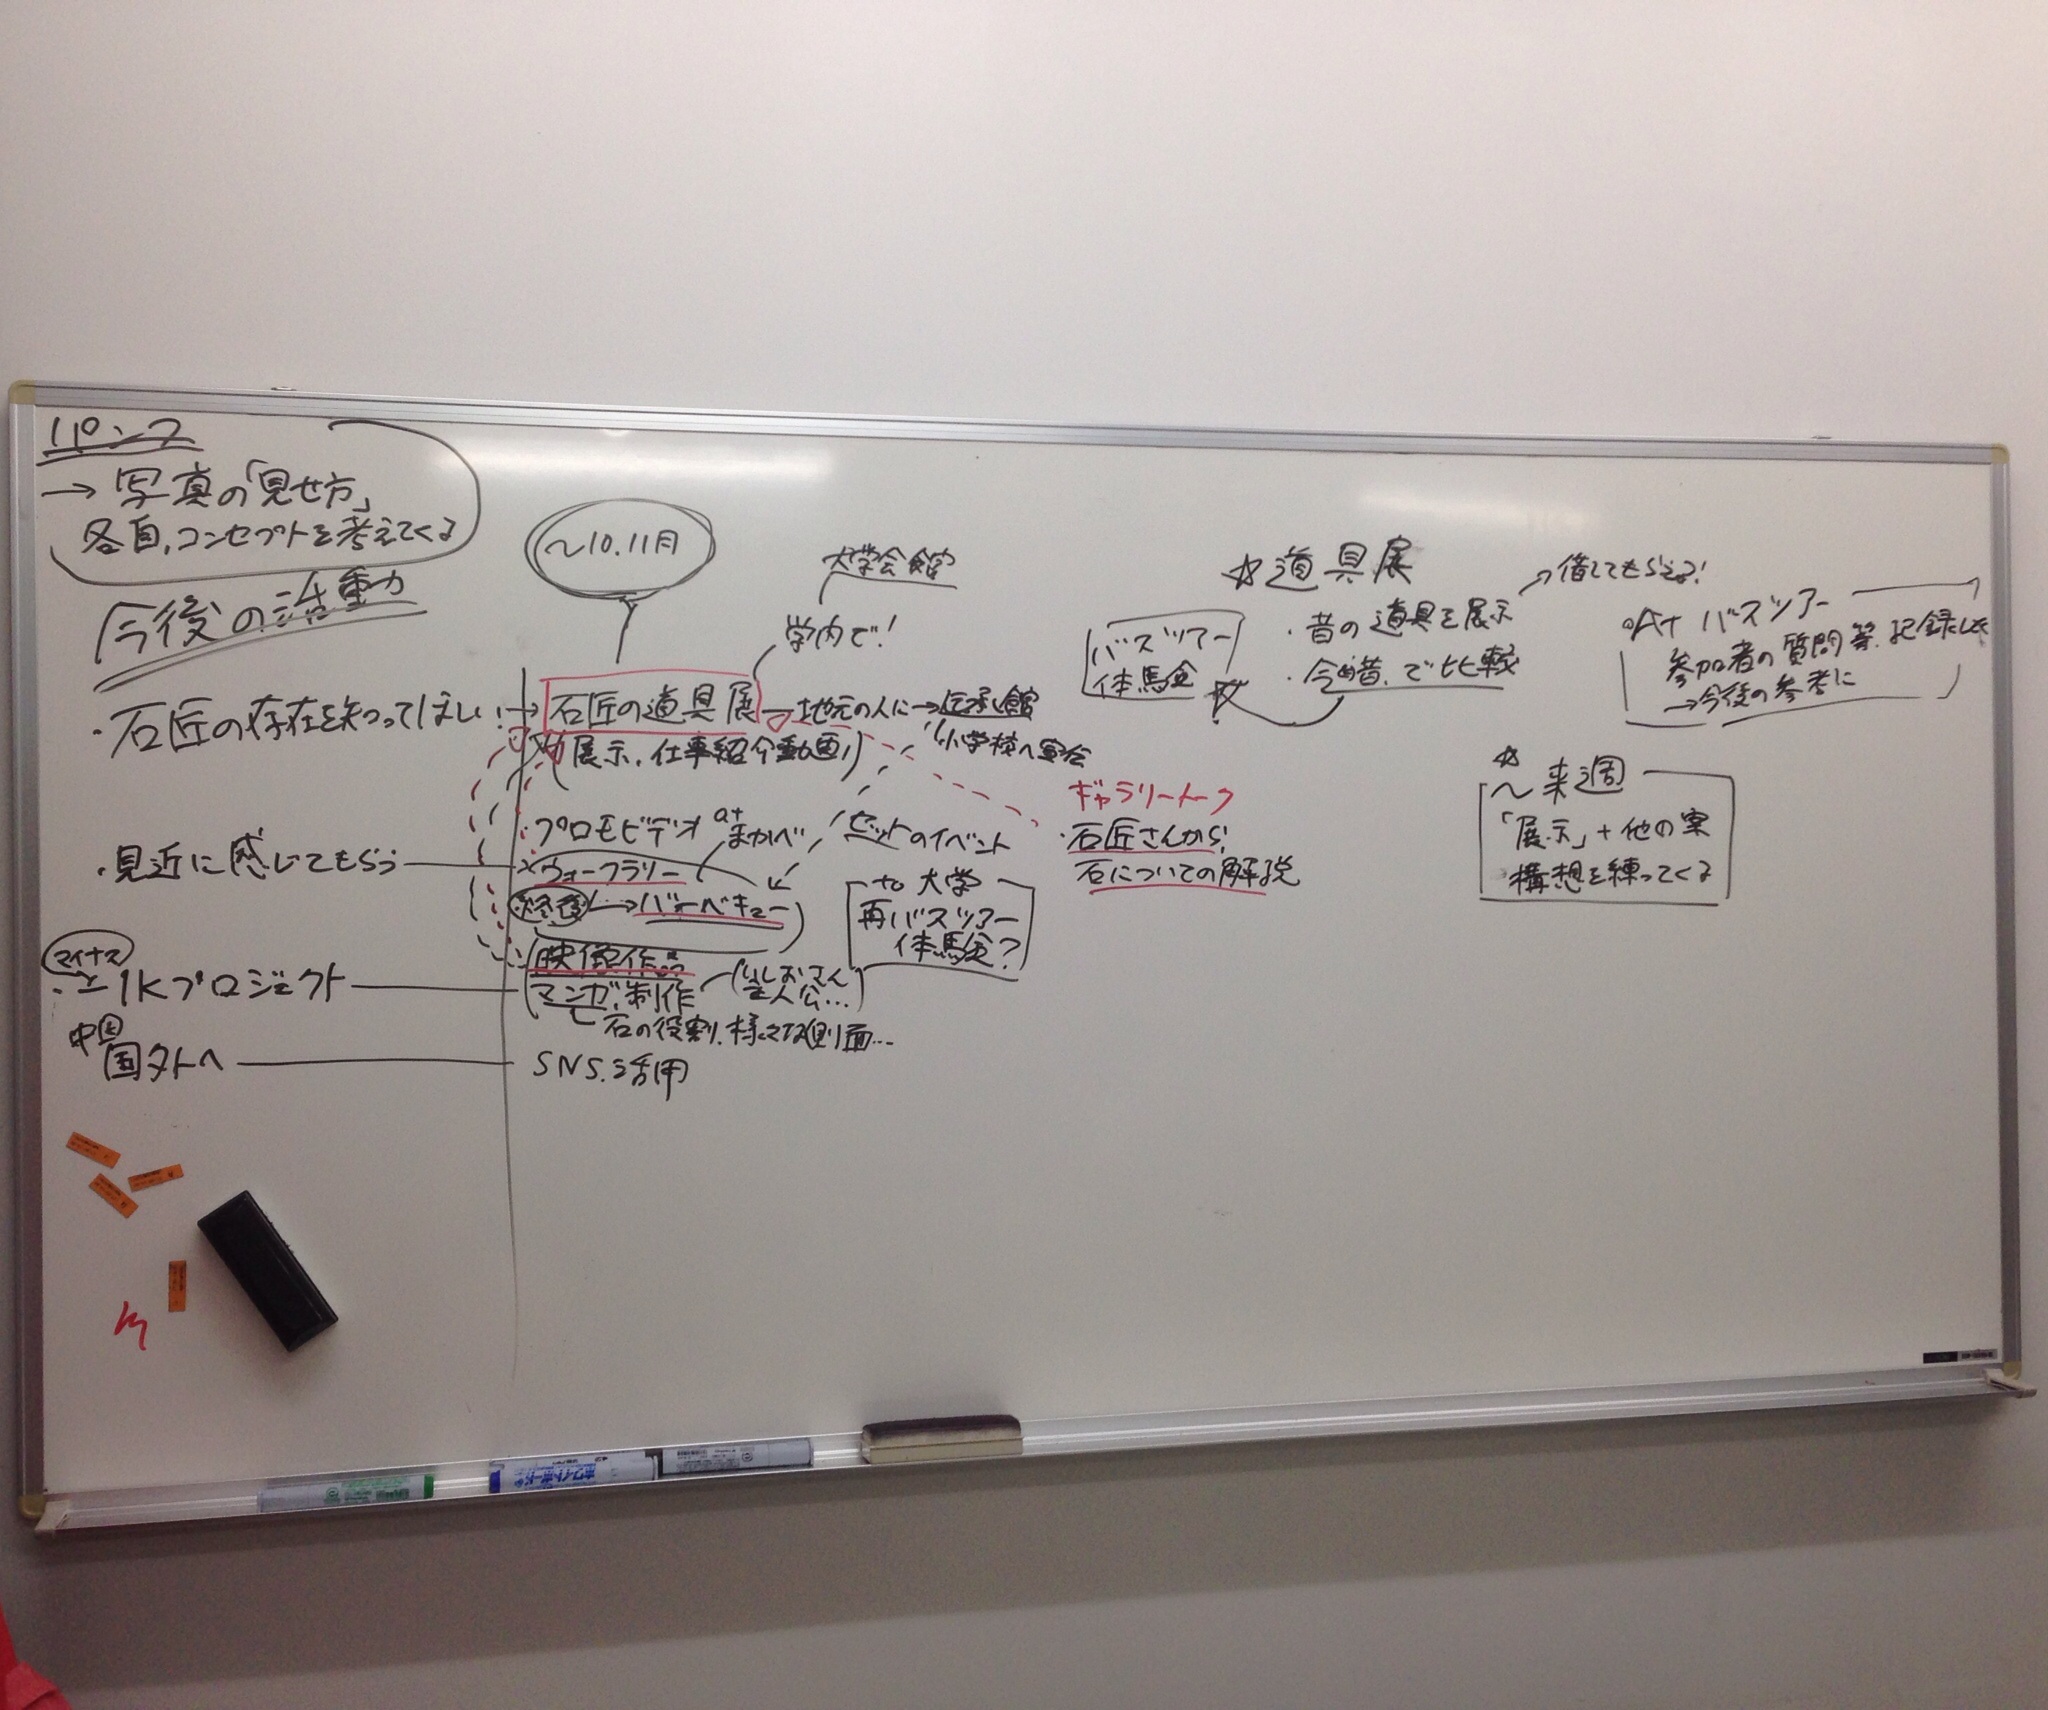 → 写真の「見せ方」
各自、コンセプトを考えてくる
今後の活動
・石匠の存在を知ってほしい!
・見近に感じてもらう
マイナス
1Kプロジェクト
国外へ
～10.11月
大学会館
学内で!
石匠の道具展
地元の人に→伝承館
小学校へ宣伝
(展示、仕事紹介動画)
・プロモビデオ
at まかべ
ウォークラリー
バーベキュー
セットのイベント
映像作品
マンガ制作
(いしおさん
主人公...)
石の役割、様々な側面...
SNS活用
to 大学
再バスツアー
体験?
ギャラリートーク
・石匠さんから
石についての解説
バスツアー
体験
☆道具展
・昔の道具を展示
→借してもらえる!
・今昔で比較
At バスツアー
参加者の質問等、記録しとく
→今後の参考に
☆
～来週
「展示」+他の案
構想を練ってくる